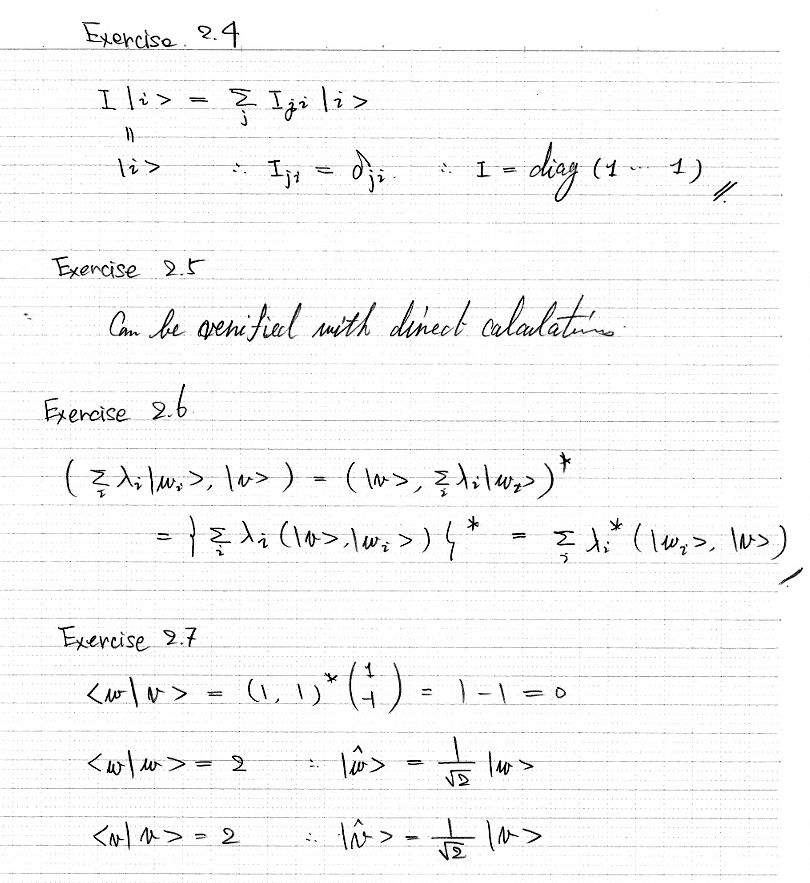 Exercise. 2.4
I |i> = Σ_j I_ji |i>
||
|i> ∴ I_ji = δ_ji. ∴ I = diag (1 ... 1) //
Exercise 2.5
Can be verified with direct calculations.
Exercise 2.6
( Σ_i λ_i |w_i>, |v> ) = ( |v>, Σ_i λ_i |w_i> )^*
= { Σ_i λ_i ( |v>, |w_i> ) }^* = Σ_i λ_i^* ( |w_i>, |v> )
Exercise 2.7
<w|v> = (1, 1)^* (1 -1) = 1 - 1 = 0
<w|w> = 2 ∴ |ŵ> = 1/√2 |w>
<v|v> = 2 ∴ |v̂> = 1/√2 |v>